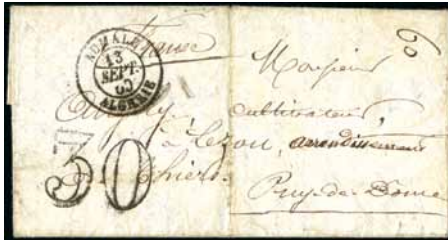 AUMALE
13
SEPT.
60
ALGÉRIE
France
60
Monsieur
cultivateur,
à Lezou, arrondissement
Thiers
Puy-de-Dome
30